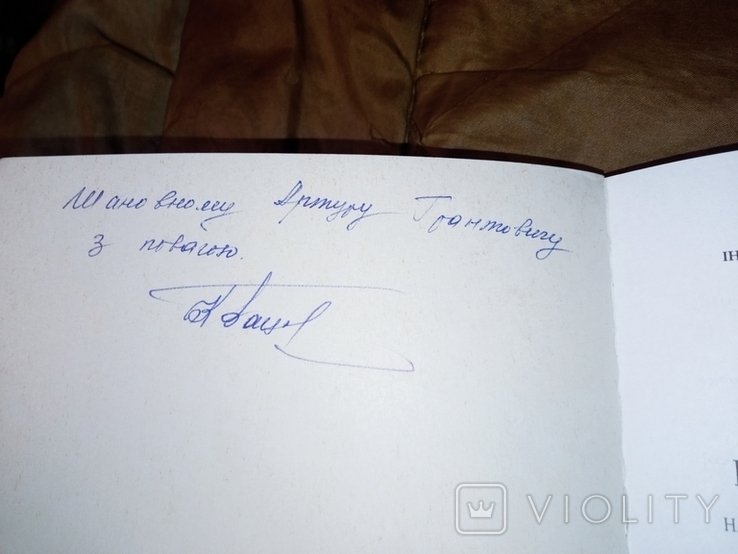 Шановному Артуру Грантовичу
з повагою.
ІН
Н
VIOLITY